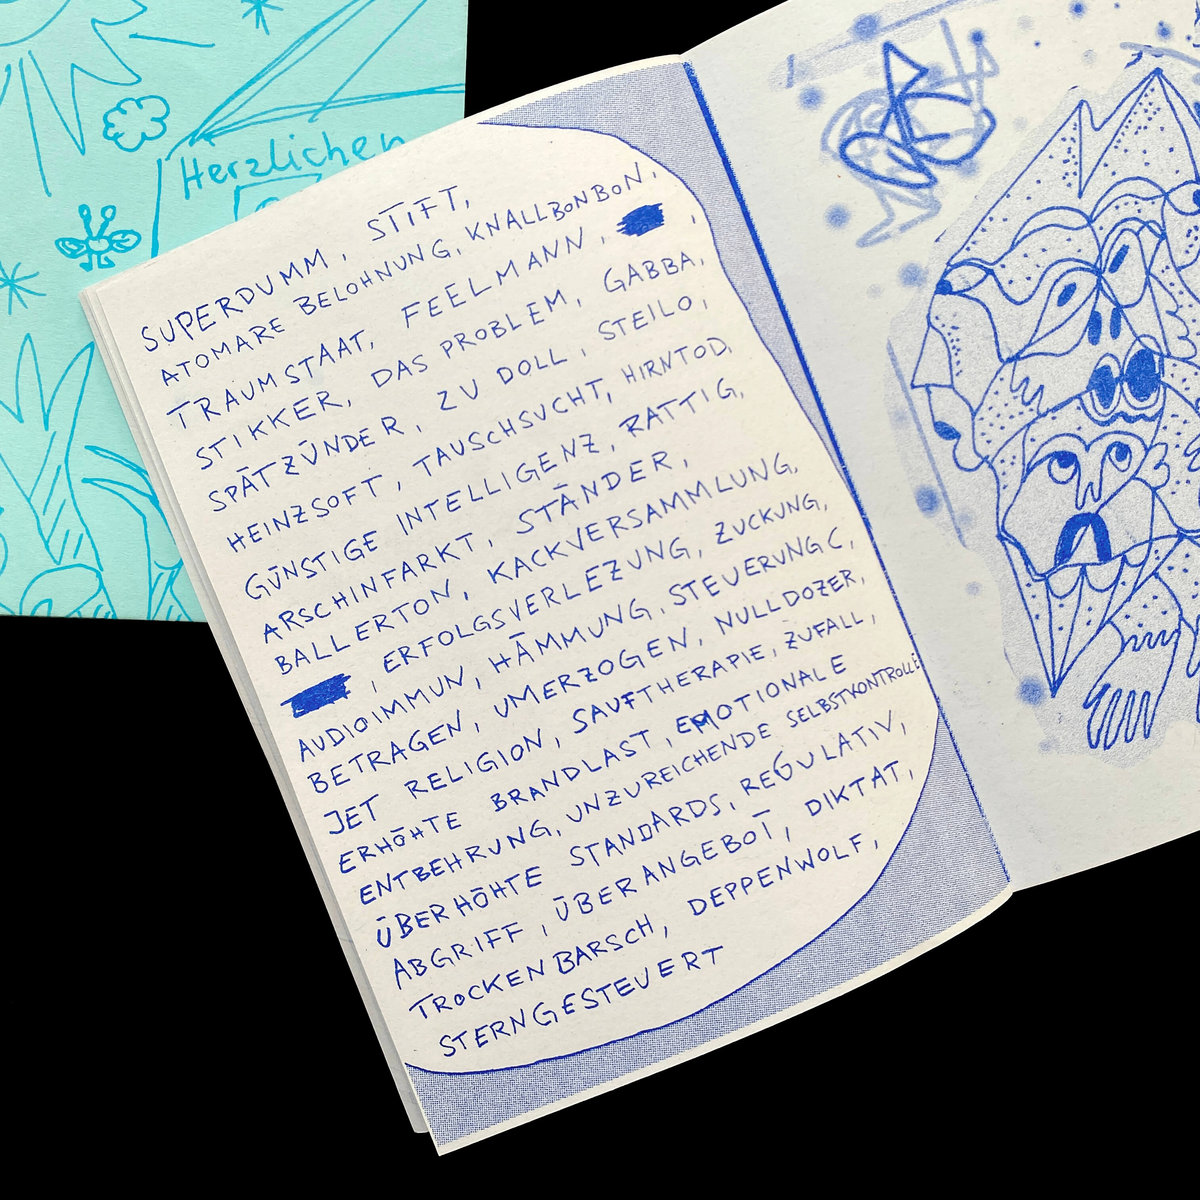 Herzlichen
SUPERDUMM, STIFT,
ATOMARE BELOHNUNG, KNALLBONBON,
TRAUMSTAAT, FEELMANN, ,
STIKKER, DAS PROBLEM, GABBA,
SPÄTZÜNDER, ZU DOLL, STEILO,
HEINZSOFT, TAUSCHSUCHT, HIRNTOD,
GÜNSTIGE INTELLIGENZ, RATTIG,
ARSCHINFARKT, STÄNDER,
BALLERTON, KACKVERSAMMLUNG,
, ERFOLGSVERLEZUNG, ZUCKUNG,
AUDIOIMMUN, HÄMMUNG, STEUERUNG C,
BETRAGEN, UMERZOGEN, NULLDOZER,
JET RELIGION, SAUFTHERAPIE, ZUFALL,
ERHÖHTE BRANDLAST, EMOTIONALE
ENTBEHRUNG, UNZUREICHENDE SELBSTKONTROLLE
ÜBERHÖHTE STANDARDS, REGULATIV,
ABGRIFF, ÜBERANGEBOT, DIKTAT,
TROCKENBARSCH, DEPPENWOLF,
STERNGESTEUERT